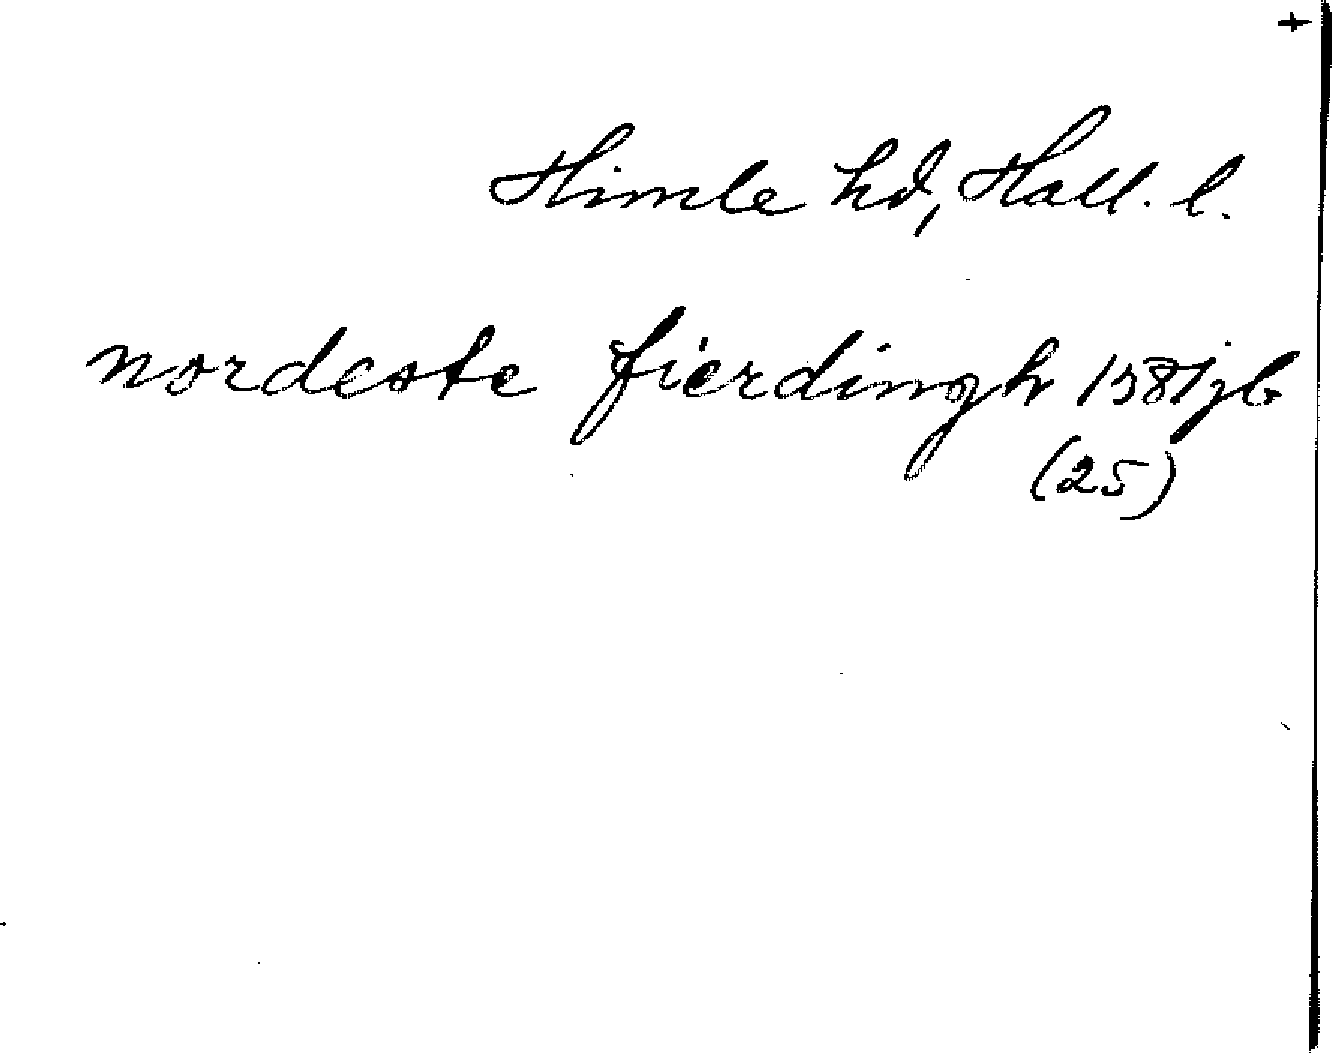 +
Himle hd, Hall. l.
nordeste fierdingh 1581 jb
(25)